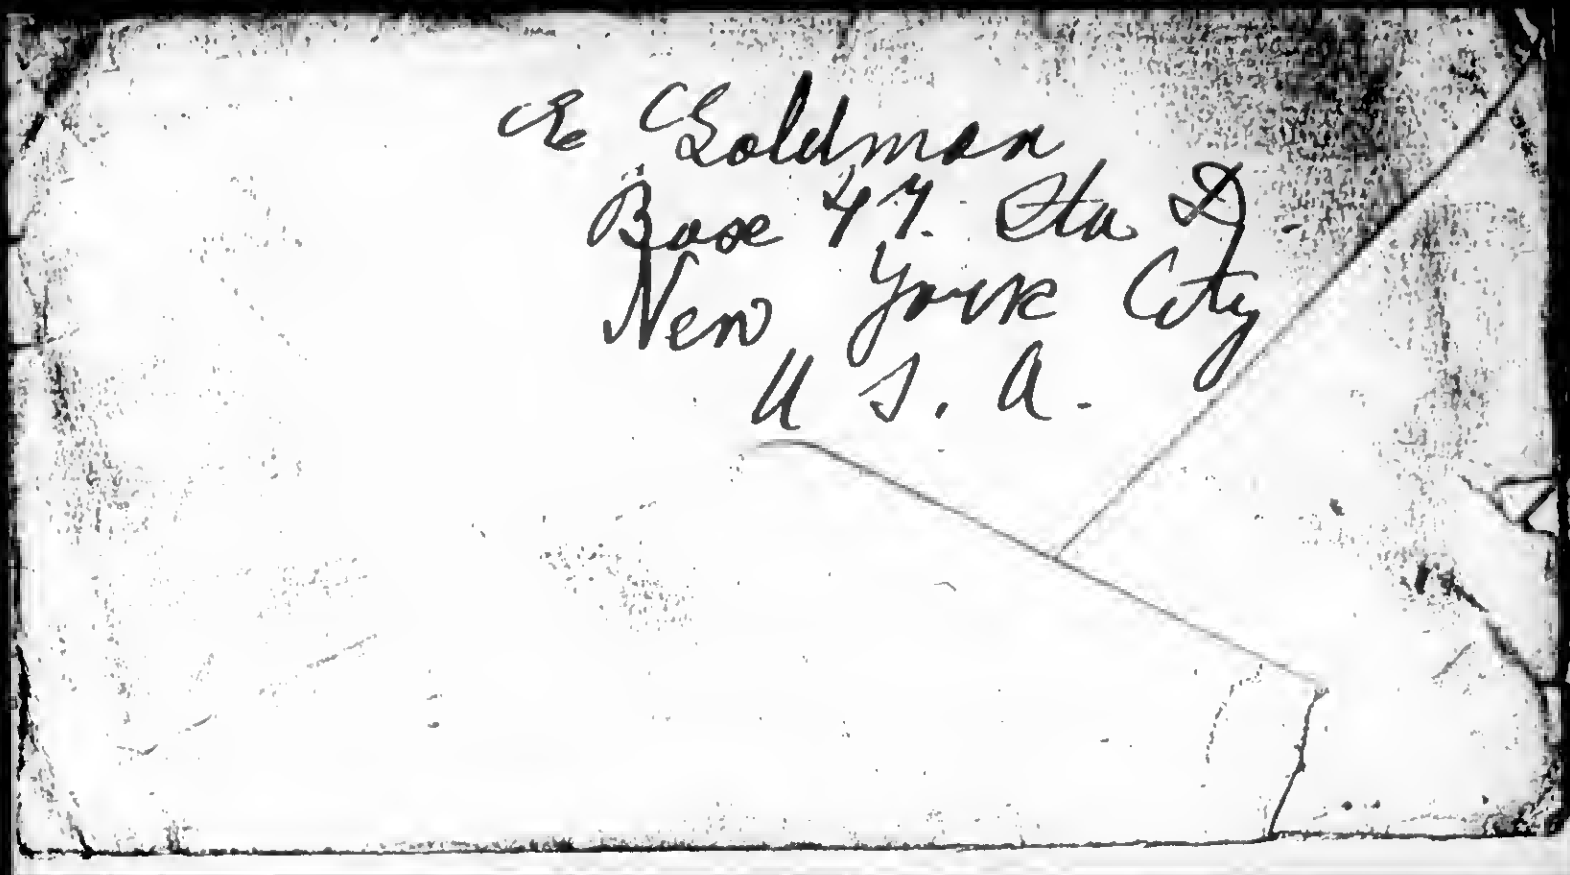 E Goldman
Box 47. Sta D
New York City
U S. A.